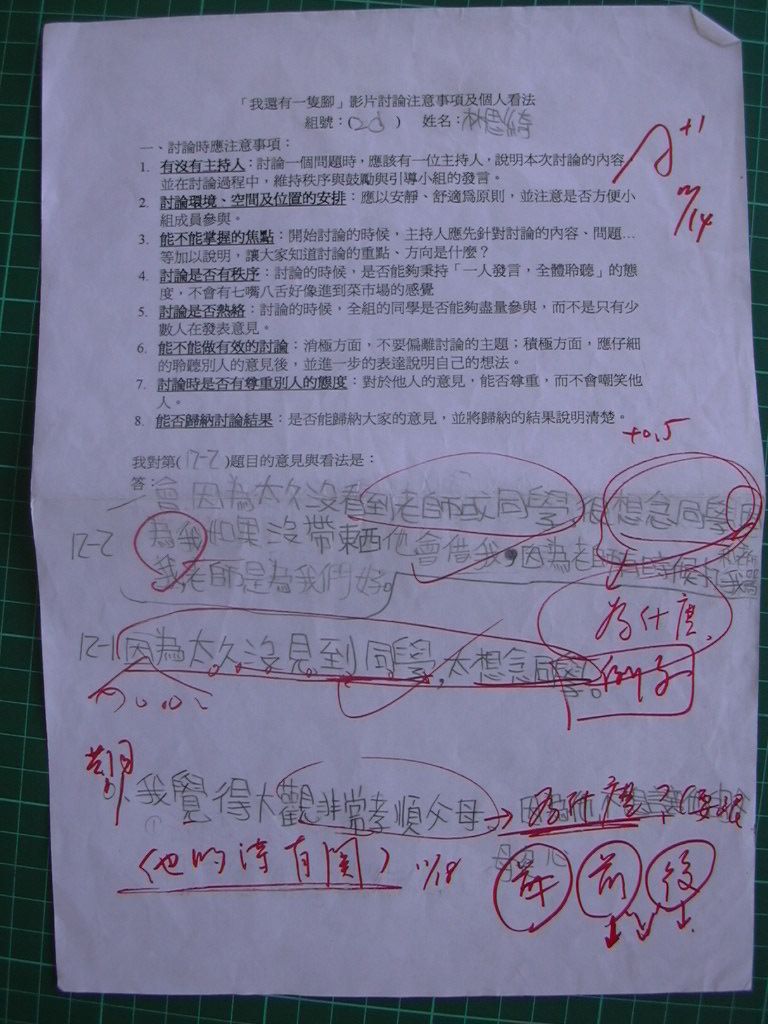 「我還有一隻腳」影片討論注意事項及個人看法
組號：( ) 姓名：林思綺
A+1
一、討論時應注意事項：
1. 有沒有主持人：討論一個問題時，應該有一位主持人，說明本次討論的內容，
並在討論過程中，維持秩序與鼓勵與引導小組的發言。
2. 討論環境、空間及位置的安排：應以安靜、舒適為原則，並注意是否方便小
組成員參與。
3. 能不能掌握的焦點：開始討論的時候，主持人應先針對討論的內容、問題…
等加以說明，讓大家知道討論的重點、方向是什麼？
4. 討論是否有秩序：討論的時候，是否能夠秉持「一人發言，全體聆聽」的態
度，不會有七嘴八舌好像進到菜市場的感覺
5. 討論是否熱絡：討論的時候，全組的同學是否能夠盡量參與，而不是只有少
數人在發表意見。
6. 能不能做有效的討論：消極方面，不要偏離討論的主題；積極方面，應仔細
的聆聽別人的意見後，並進一步的表達說明自己的想法。
7. 討論時是否有尊重別人的態度：對於他人的意見，能否尊重，而不會嘲笑他
人。
8. 能否歸納討論結果：是否能歸納大家的意見，並將歸納的結果說明清楚。
+0.5
我對第(12-2)題目的意見與看法是：
答：
會因為太久沒看到老師或同學，很想念同學因
12-2 為我如果沒帶東西他會借我，因為老師
我,老師是為我們好。
為什麼
12-1 因為太久沒見到同學，太想念同學。
例子
我覺得大觀非常孝順父母。→ 為什麼？(要跟
他的 有關) 11/18
前 後